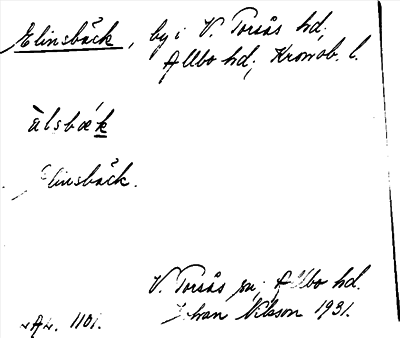 Elinsbäck, by i V. Torsås hd;
Allbo hd; Kronob. l.
àlsbæk
Elinsbäck.
V. Torsås sn; Allbo hd.
Johan Nilsson 1931.
1101.